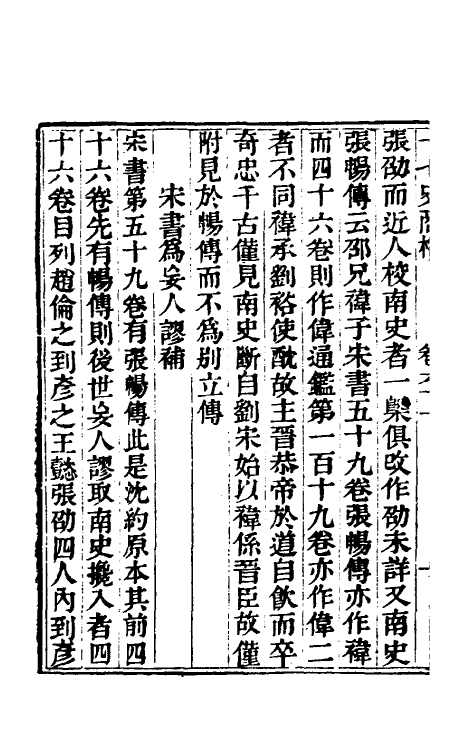 張劭而近人校南史者一槩俱改作劭未詳又南史
張暢傳云邵兄禕子宋書五十九卷張暢傳亦作禕
而四十六卷則作偉通鑑第一百十九卷亦作偉二
者不同禕承劉裕使酖故主晉恭帝於道自飮而卒
奇忠千古僅見南史斷自劉宋始以禕係晉臣故僅
附見於暢傳而不爲別立傳
宋書爲妄人謬補
宋書第五十九卷有張暢傳此是沈約原本其前四
十六卷先有暢傳則後世妄人謬取南史攙入者四
十六卷目列趙倫之到彥之王懿張劭四人內到彥